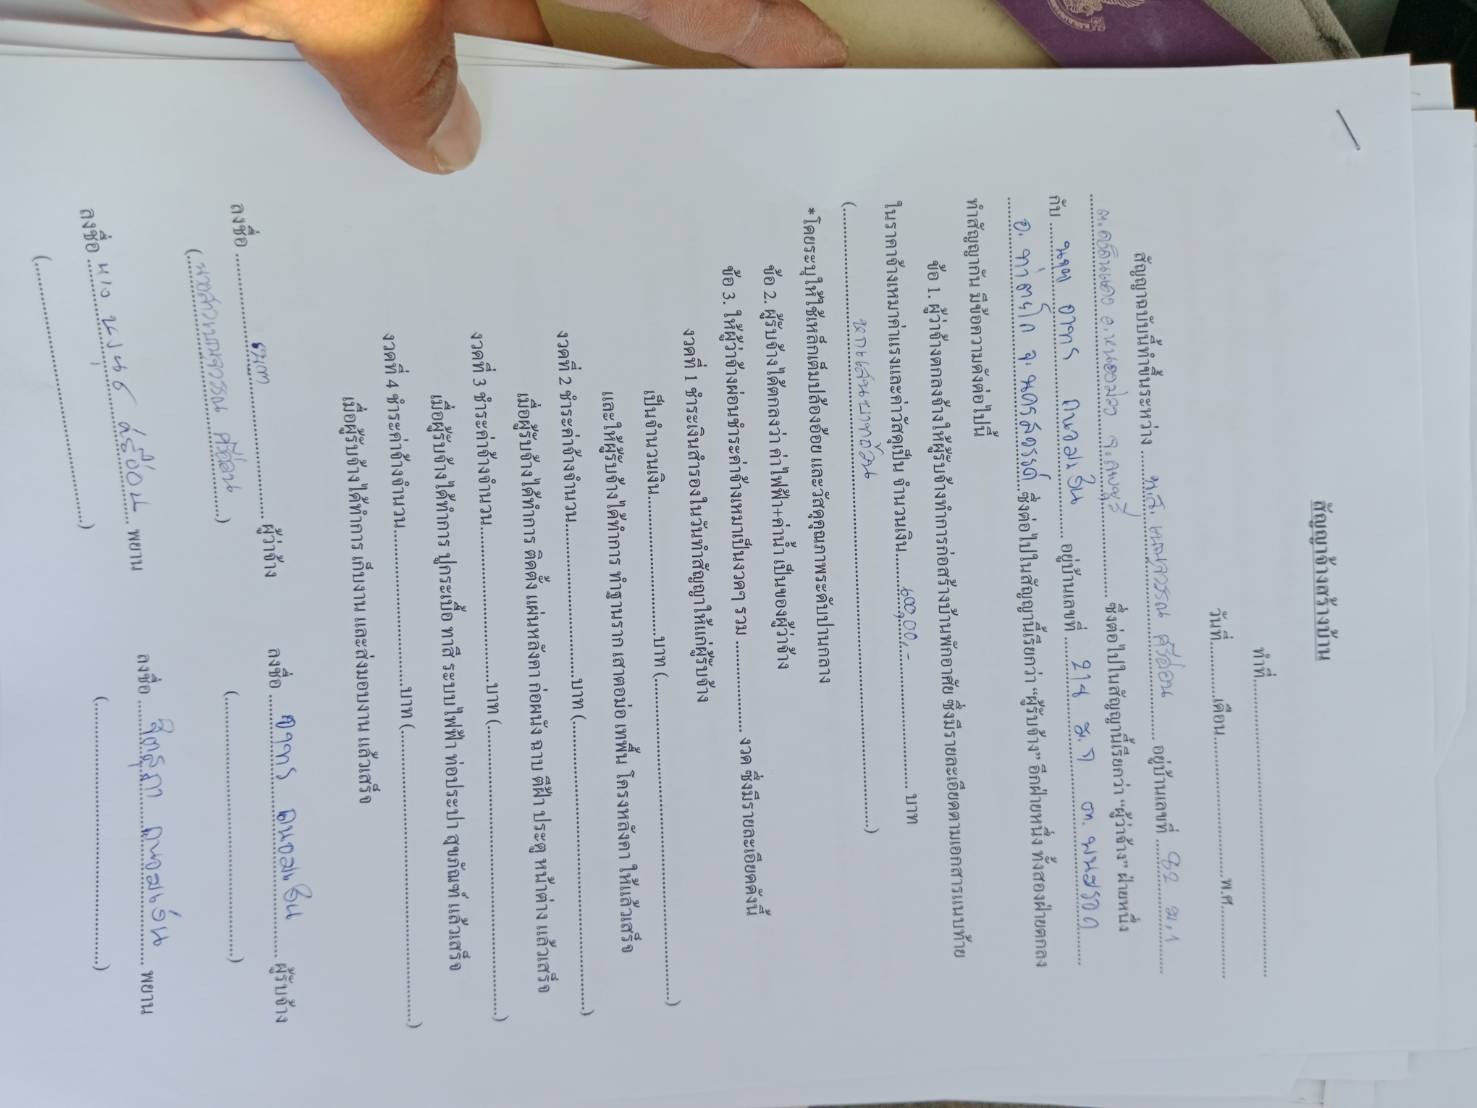 สัญญาจ้างสร้างบ้าน
ทำที่
วันที่ เดือน พ.ศ.
สัญญาฉบับนี้ทำขึ้นระหว่าง อยู่บ้านเลขที่ 82 ม.1
ซึ่งต่อไปในสัญญานี้เรียกว่า "ผู้ว่าจ้าง" ฝ่ายหนึ่ง
กับ นาย อาทร ถนอมเงิน อยู่บ้านเลขที่
อ. ท่าตะโก จ. นครสวรรค์ ซึ่งต่อไปในสัญญานี้เรียกว่า "ผู้รับจ้าง" อีกฝ่ายหนึ่ง ทั้งสองฝ่ายตกลง
ทำสัญญากัน มีข้อความดังต่อไปนี้
ข้อ 1. ผู้ว่าจ้างตกลงจ้างให้ผู้รับจ้างทำการก่อสร้างบ้านพักอาศัย ซึ่งมีรายละเอียดตามเอกสารแนบท้าย
ในราคาจ้างเหมาค่าแรงและค่าวัสดุเป็น จำนวนเงิน บาท
( หกแสนบาทถ้วน )
*โดยระบุให้ใช้เหล็กเต็มปล้องอ้อย และวัสดุคุณภาพระดับปานกลาง
ข้อ 2. ผู้รับจ้างได้ตกลงว่า ค่าไฟฟ้า+ค่าน้ำ เป็นของผู้ว่าจ้าง
ข้อ 3. ให้ผู้ว่าจ้างผ่อนชำระค่าจ้างเหมาเป็นงวดๆ รวม งวด ซึ่งมีรายละเอียดดังนี้
งวดที่ 1 ชำระเงินสำรองในวันทำสัญญาให้แก่ผู้รับจ้าง
เป็นจำนวนเงิน บาท ( )
และให้ผู้รับจ้างได้ทำการ ทำฐานราก เสาตอม่อ เทพื้น โครงหลังคา ให้แล้วเสร็จ
งวดที่ 2 ชำระค่าจ้างจำนวน บาท ( )
เมื่อผู้รับจ้างได้ทำการ ติดตั้ง แผ่นหลังคา ก่อผนัง ฉาบ ตีฝ้า ประตู หน้าต่าง แล้วเสร็จ
งวดที่ 3 ชำระค่าจ้างจำนวน บาท ( )
เมื่อผู้รับจ้างได้ทำการ ปูกระเบื้อ ทาสี ระบบไฟฟ้า ท่อประปา สุขภัณฑ์ แล้วเสร็จ
งวดที่ 4 ชำระค่าจ้างจำนวน บาท ( )
เมื่อผู้รับจ้างได้ทำการ เก็บงาน และส่งมอบงาน แล้วเสร็จ
ลงชื่อ ผู้ว่าจ้าง ลงชื่อ อาทร ถนอมเงิน ผู้รับจ้าง
ลงชื่อ พยาน ลงชื่อ ถนอมเงิน พยาน